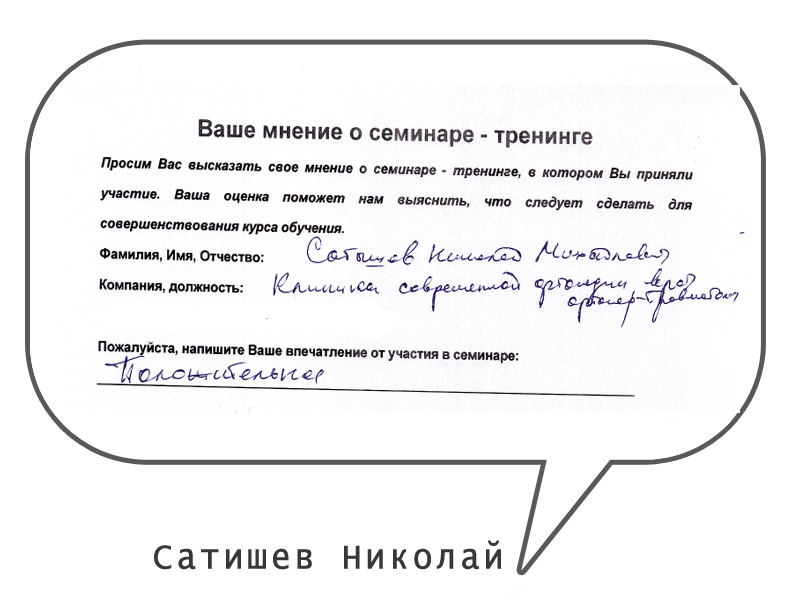 Ваше мнение о семинаре - тренинге
Просим Вас высказать свое мнение о семинаре - тренинге, в котором Вы приняли
участие. Ваша оценка поможет нам выяснить, что следует сделать для
совершенствования курса обучения.
Фамилия, Имя, Отчество: Сатышев Николай Михайлович
Компания, должность: Клиника современной ортопедии врач
ортопед-травматолог
Пожалуйста, напишите Ваше впечатление от участия в семинаре:
Положительное
Сатишев Николай